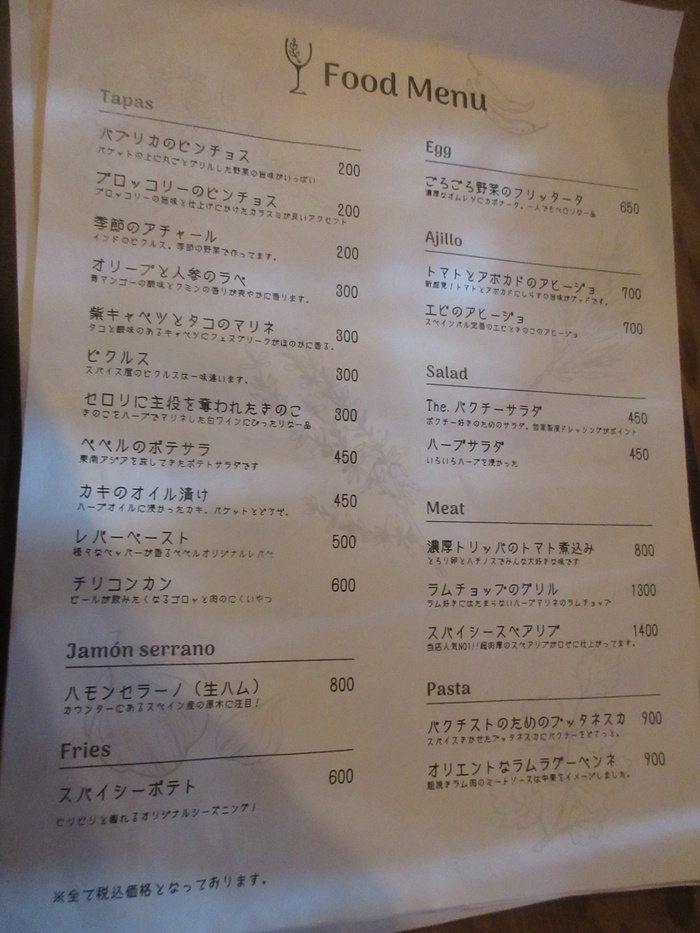 Food Menu
Tapas
パプリカのピンチョス 200
バケットの上に丸ごとグリルした野菜の旨味がいっぱい
ブロッコリーのピンチョス 200
ブロッコリーの旨味と仕上げにかけたカラスミが良いアクセント
季節のアチャール 200
インドのピクルス。季節の野菜で作ってます。
オリーブと人参のラペ 300
青マンゴーの酸味とクミンの香りが爽やかに香ります。
紫キャベツとタコのマリネ 300
タコと酸味のあるキャベツにフェヌグリークがほのかに香る。
ピクルス 300
スパイス屋のピクルスは一味違います。
セロリに主役を奪われたきのこ 300
きのこをハーブでマリネした白ワインにぴったりな一品
ペペルのポテサラ 450
東南アジアを旅してきたポテトサラダです
カキのオイル漬け 450
ハーブオイルに浸かったカキ。バケットとどうぞ。
レバーペースト 500
様々なペッパーが香るペペルオリジナルレバペ
チリコンカン 600
ビールが飲みたくなるゴロッと肉のにくいやつ
Jamón serrano
ハモンセラーノ（生ハム） 800
カウンターにあるスペイン産の原木に注目！
Fries
スパイシーポテト 600
ピリピリと痺れるオリジナルシーズニング！
※全て税込価格となっております。
Egg
ごろごろ野菜のフリッタータ 650
濃厚なオムレツにカポナータ。一人でもペロリな一品
Ajillo
トマトとアボカドのアヒージョ 700
新感覚！トマトとアボカドにしらすの旨味がグッドです。
エビのアヒージョ 700
スペインバル定番のエビときのこのアヒージョ
Salad
The. パクチーサラダ 450
パクチー好きのためのサラダ。自家製ドレッシングがポイント
ハーブサラダ 450
いろいろハーブを浸かった
Meat
濃厚トリッパのトマト煮込み 800
とろり卵とハチノスでみんな大好きな味です
ラムチョップのグリル 1300
ラム好きにはたまらないハーブマリネのラムチョップ
スパイシースペアリブ 1400
当店人気NO1!!超肉厚のスペアリブがロゼに仕上がってます。
Pasta
パクチストのためのプッタネスカ 900
スパイスきかせたプッタネスカにパクチーをどさっと。
オリエントなラムラグーペンネ 900
粗挽きラム肉のミートソースは中東をイメージしました。